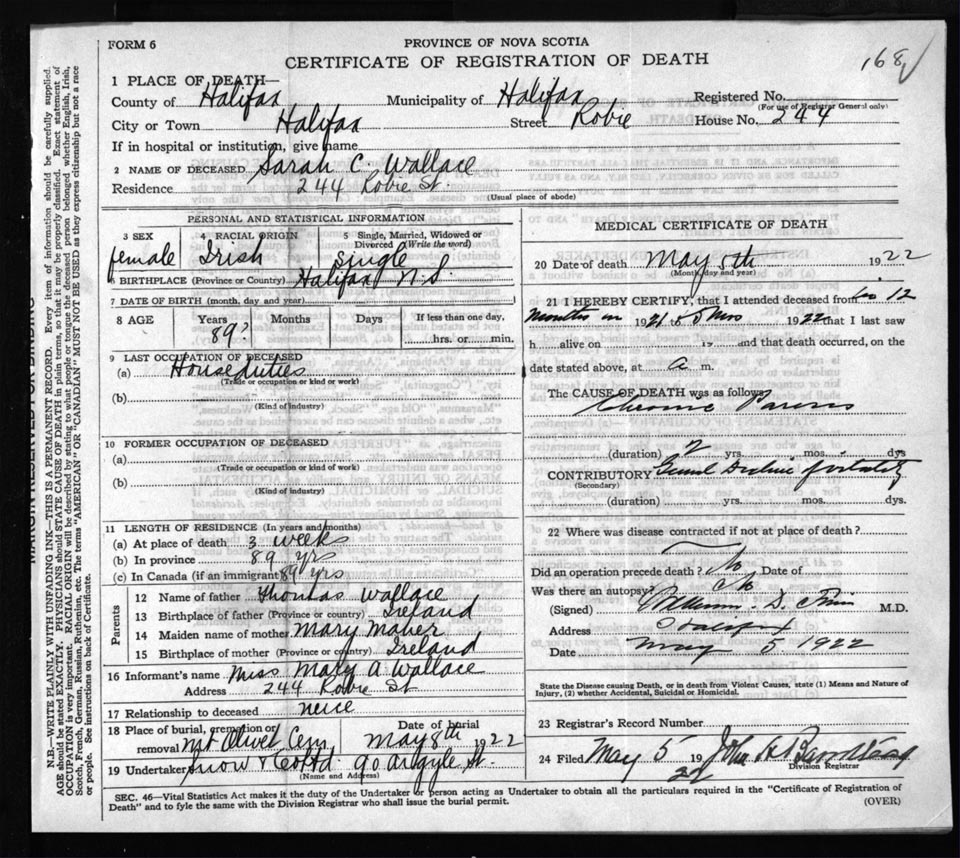 FORM 6
PROVINCE OF NOVA SCOTIA
CERTIFICATE OF REGISTRATION OF DEATH
168
1 PLACE OF DEATH—
County of Halifax Municipality of Halifax Registered No.
(For use of Registrar General only)
City or Town Halifax Street Robie House No. 244
If in hospital or institution, give name
2 NAME OF DECEASED Sarah C. Wallace
Residence 244 Robie St.
(Usual place of abode)
PERSONAL AND STATISTICAL INFORMATION
3 SEX 4 RACIAL ORIGIN 5 Single, Married, Widowed or Divorced (Write the word)
female Irish Single
6 BIRTHPLACE (Province or Country) Halifax N.S.
7 DATE OF BIRTH (month, day and year)
8 AGE Years Months Days If less than one day,
89? hrs. or min.
9 LAST OCCUPATION OF DECEASED
(a) House duties
(Trade or occupation or kind or work)
(b)
(Kind of industry)
10 FORMER OCCUPATION OF DECEASED
(a)
(Trade or occupation or kind or work)
(b)
(Kind of industry)
11 LENGTH OF RESIDENCE (In years and months)
(a) At place of death 3 weeks
(b) In province 89 yrs
(c) In Canada (if an immigrant) 89 yrs
Parents
12 Name of father Thomas Wallace
13 Birthplace of father (Province or country) Ireland
14 Maiden name of mother Mary Maher
15 Birthplace of mother (Province or country) Ireland
16 Informant's name Miss Mary A Wallace
Address 244 Robie St
17 Relationship to deceased neice
18 Place of burial, cremation or removal Mt Olivet Cem Date of burial May 8th 1922
19 Undertaker Snow & Co Ltd 90 Argyle St.
(Name and Address)
MEDICAL CERTIFICATE OF DEATH
20 Date of death May 5th 1922
(Month, day and year)
21 I HEREBY CERTIFY, that I attended deceased from 12
months in 1921 & 5 mos 1922 that I last saw
h alive on 19 and that death occurred, on the
date stated above, at a m.
The CAUSE OF DEATH was as follows:
Chronic Paresis
(duration) 2 yrs. mos. dys
CONTRIBUTORY
(Secondary)
(duration) yrs. mos. dys.
22 Where was disease contracted if not at place of death?
Did an operation precede death? No Date of
Was there an autopsy? No
(Signed) M.D.
Address Halifax
Date May 5 1922
State the Disease causing Death, or in death from Violent Causes, state (1) Means and Nature of Injury, (2) whether Accidental, Suicidal or Homicidal.
23 Registrar's Record Number
24 Filed May 5 19 22 John
Division Registrar
SEC. 46—Vital Statistics Act makes it the duty of the Undertaker or person acting as Undertaker to obtain all the particulars required in the "Certificate of Registration of
Death" and to fyle the same with the Division Registrar who shall issue the burial permit.
(OVER)
N.B.—WRITE PLAINLY WITH UNFADING INK—THIS IS A PERMANENT RECORD. Every item of information should be carefully supplied.
AGE should be stated EXACTLY. PHYSICIANS should STATE CAUSE OF DEATH in plain terms, so that it may be properly classified. Exact statement of
OCCUPATION is very important. RACIAL ORIGIN will be described by stating to what people or tongue the deceased person belonged whether English, Irish,
Scotch, French, German, Russian, Ruthenian, etc. The terms "AMERICAN" OR "CANADIAN" MUST NOT BE USED as they express citizenship but not a race
or people. See instructions on back of Certificate.